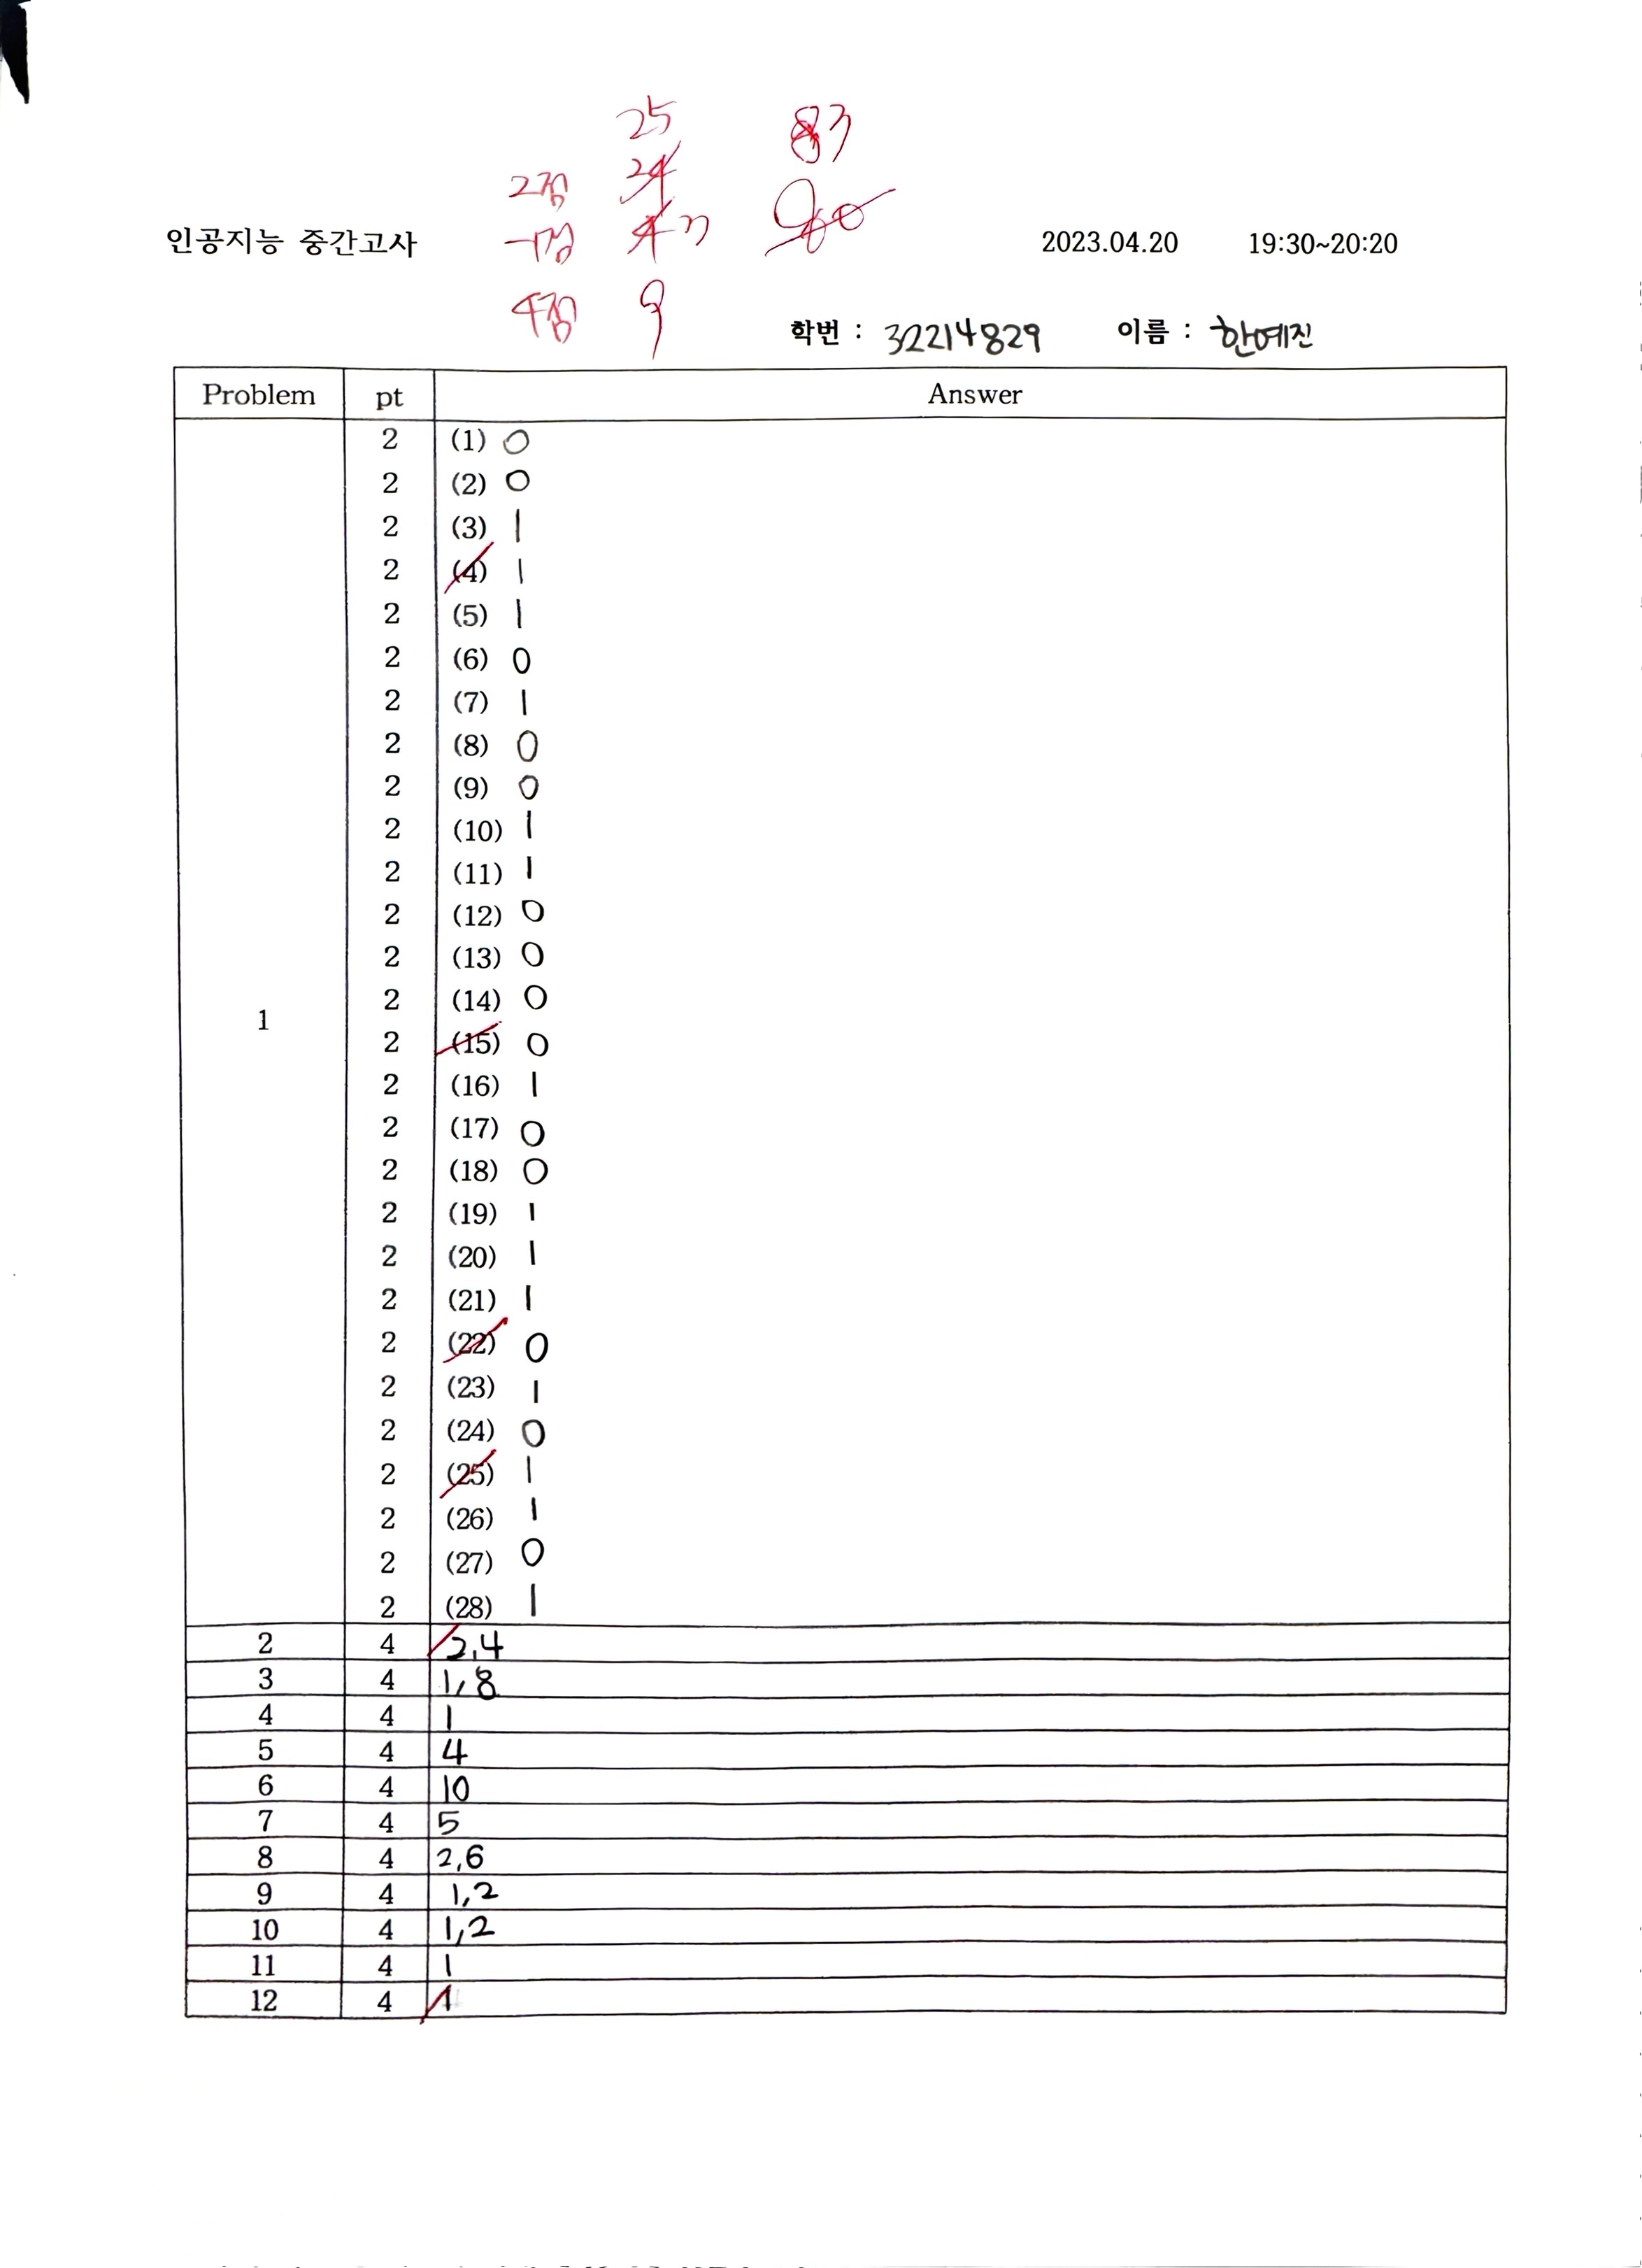 25 83
2점 24
인공지능 중간고사 -1점 4 3 90 2023.04.20 19:30~20:20
4점 9
학번 : 32214829 이름 : 한예진
Problem pt Answer
2 (1) 0
2 (2) 0
2 (3) 1
2 (4) 1
2 (5) 1
2 (6) 0
2 (7) 1
2 (8) 0
2 (9) 0
2 (10) 1
2 (11) 1
2 (12) 0
2 (13) 0
2 (14) 0
1
2 (15) 0
2 (16) 1
2 (17) 0
2 (18) 0
2 (19) 1
2 (20) 1
2 (21) 1
2 (22) 0
2 (23) 1
2 (24) 0
2 (25) 1
2 (26) 1
2 (27) 0
2 (28) 1
2 4 2,4
3 4 1,8
4 4 1
5 4 4
6 4 10
7 4 5
8 4 2,6
9 4 1,2
10 4 1,2
11 4 1
12 4 1